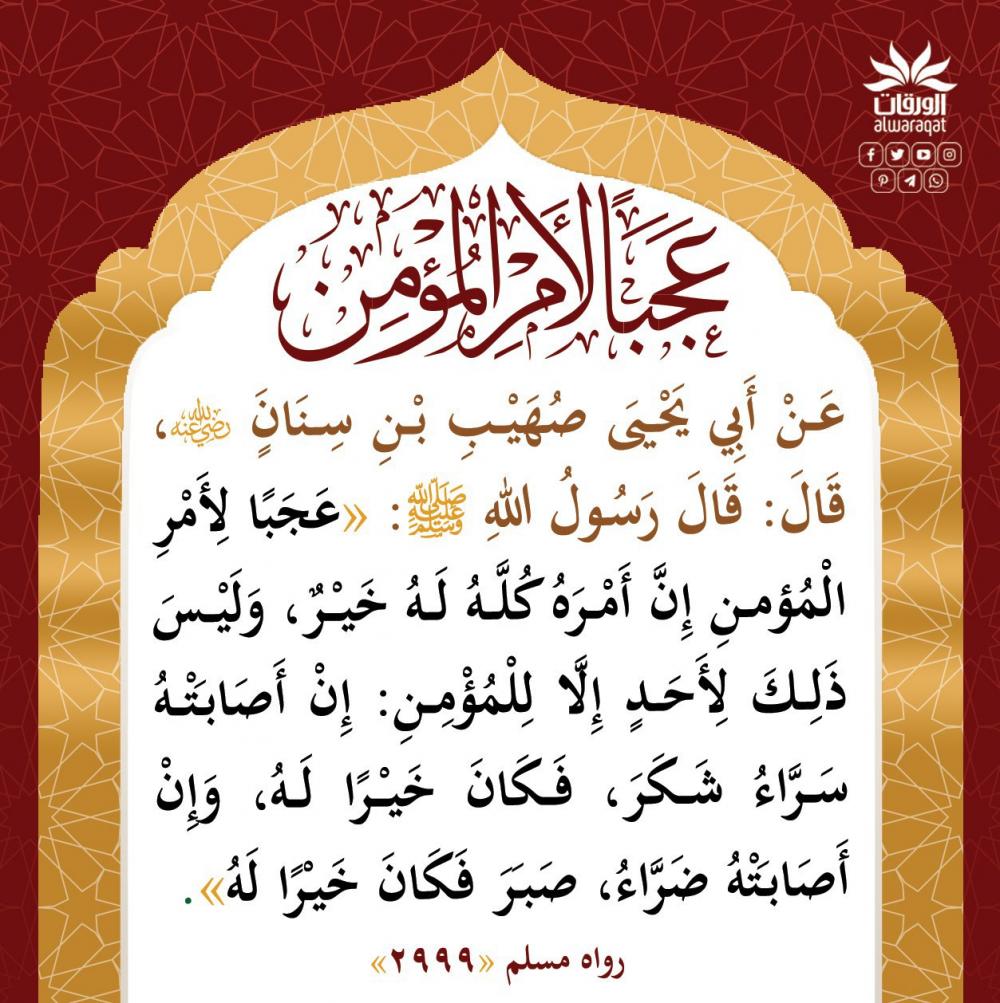 الورقات
alwaraqat
عَجَبًا لأَمْرِ الْمُؤْمِنِ
عَنْ أَبِي يَحْيَى صُهَيْبِ بْنِ سِنَانٍ رضي الله عنه،
قَالَ: قَالَ رَسُولُ اللهِ ﷺ: «عَجَبًا لِأَمْرِ
الْمُؤمنِ إِنَّ أَمْرَهُ كُلَّهُ لَهُ خَيْرٌ، وَلَيْسَ
ذَلِكَ لِأَحَدٍ إِلَّا لِلْمُؤْمِنِ: إِنْ أَصَابَتْهُ
سَرَّاءُ شَكَرَ، فَكَانَ خَيْرًا لَهُ، وَإِنْ
أَصَابَتْهُ ضَرَّاءُ، صَبَرَ فَكَانَ خَيْرًا لَهُ».
رواه مسلم «٢٩٩٩»